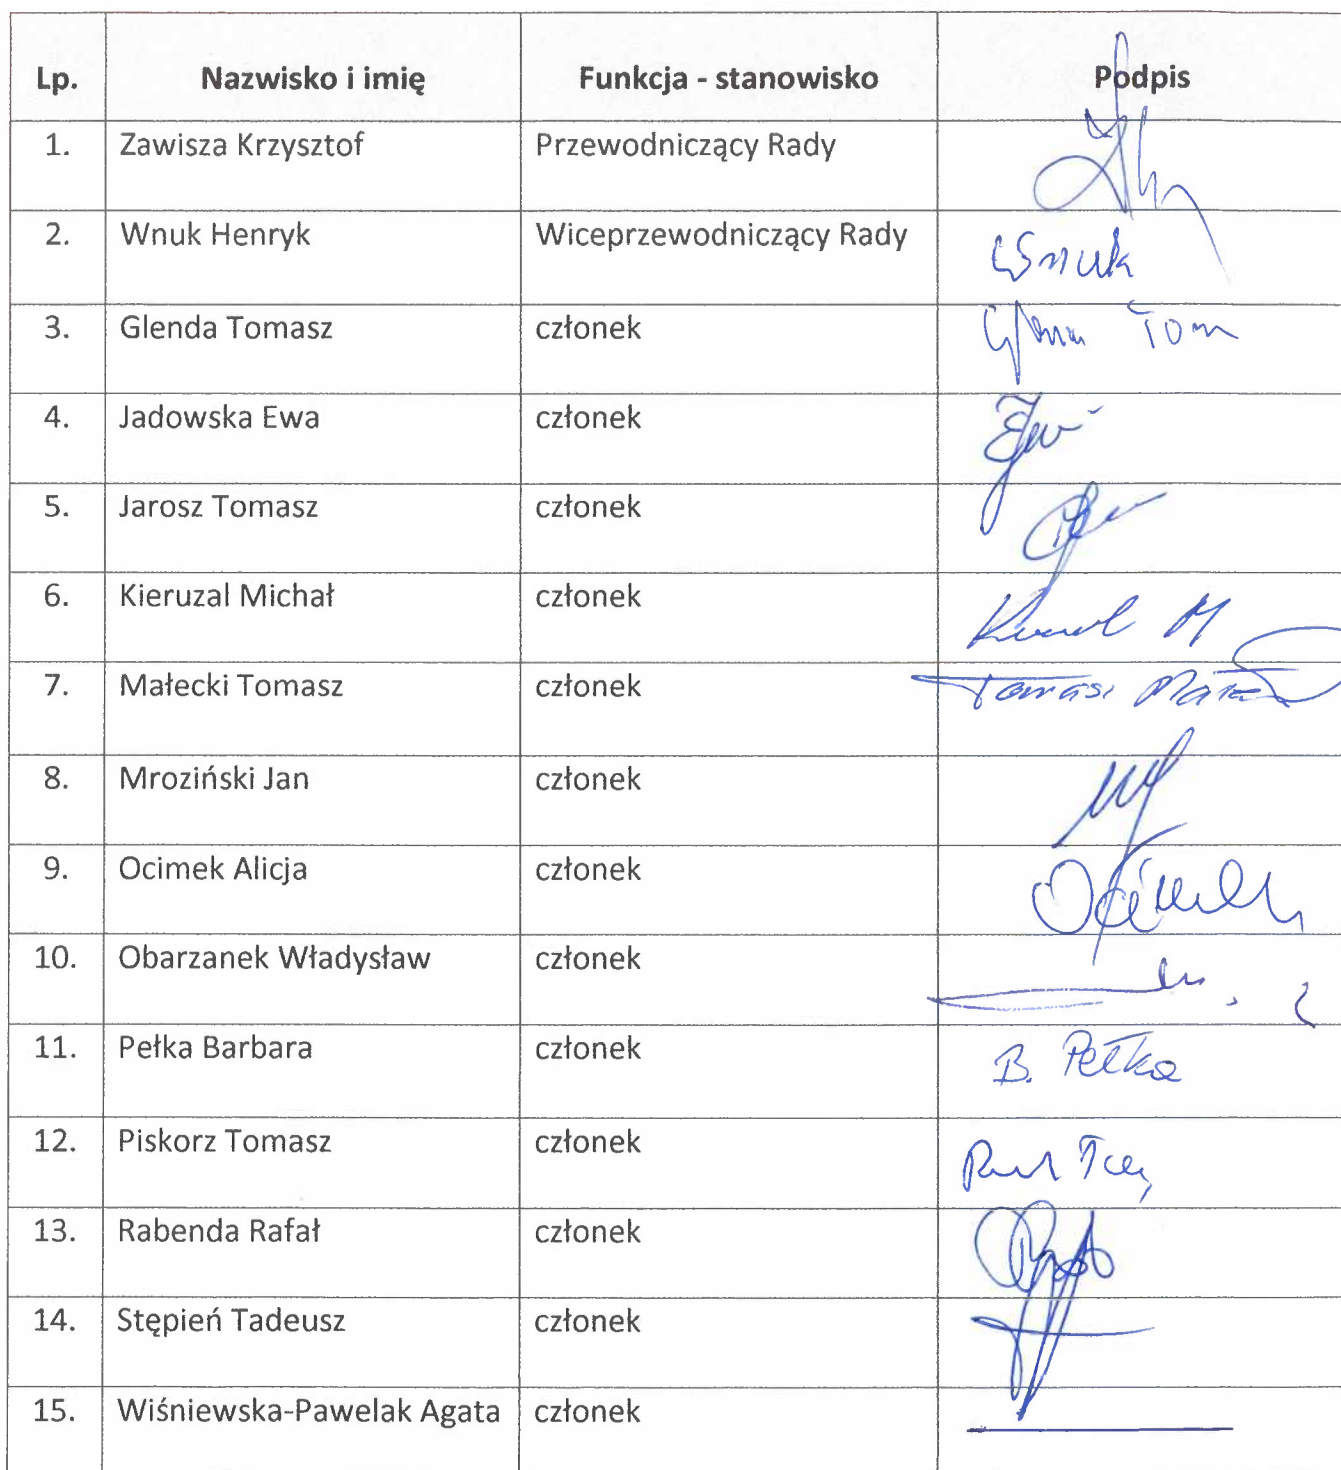 Lp. Nazwisko i imię Funkcja - stanowisko Podpis
1. Zawisza Krzysztof Przewodniczący Rady
2. Wnuk Henryk Wiceprzewodniczący Rady Wnuk
3. Glenda Tomasz członek Tom
4. Jadowska Ewa członek
5. Jarosz Tomasz członek
6. Kieruzal Michał członek M
7. Małecki Tomasz członek Tomasz
8. Mroziński Jan członek
9. Ocimek Alicja członek Ocimek
10. Obarzanek Władysław członek
11. Pełka Barbara członek B. Pełka
12. Piskorz Tomasz członek
13. Rabenda Rafał członek
14. Stępień Tadeusz członek
15. Wiśniewska-Pawelak Agata członek